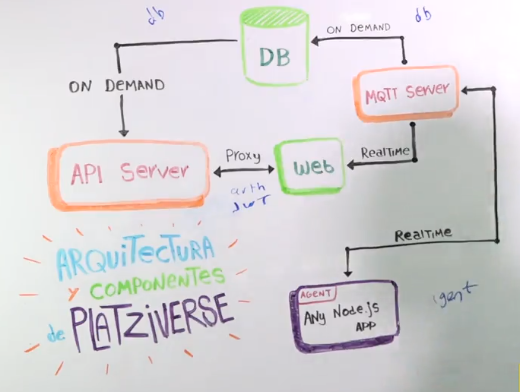 db
db
ON DEMAND
DB
ON DEMAND
MQTT Server
API Server
Proxy
Web
RealTime
auth
JWT
RealTime
ARQUITECTURA
Y COMPONENTES
de PLATZIVERSE
AGENT
ANY Node.js
APP
agent